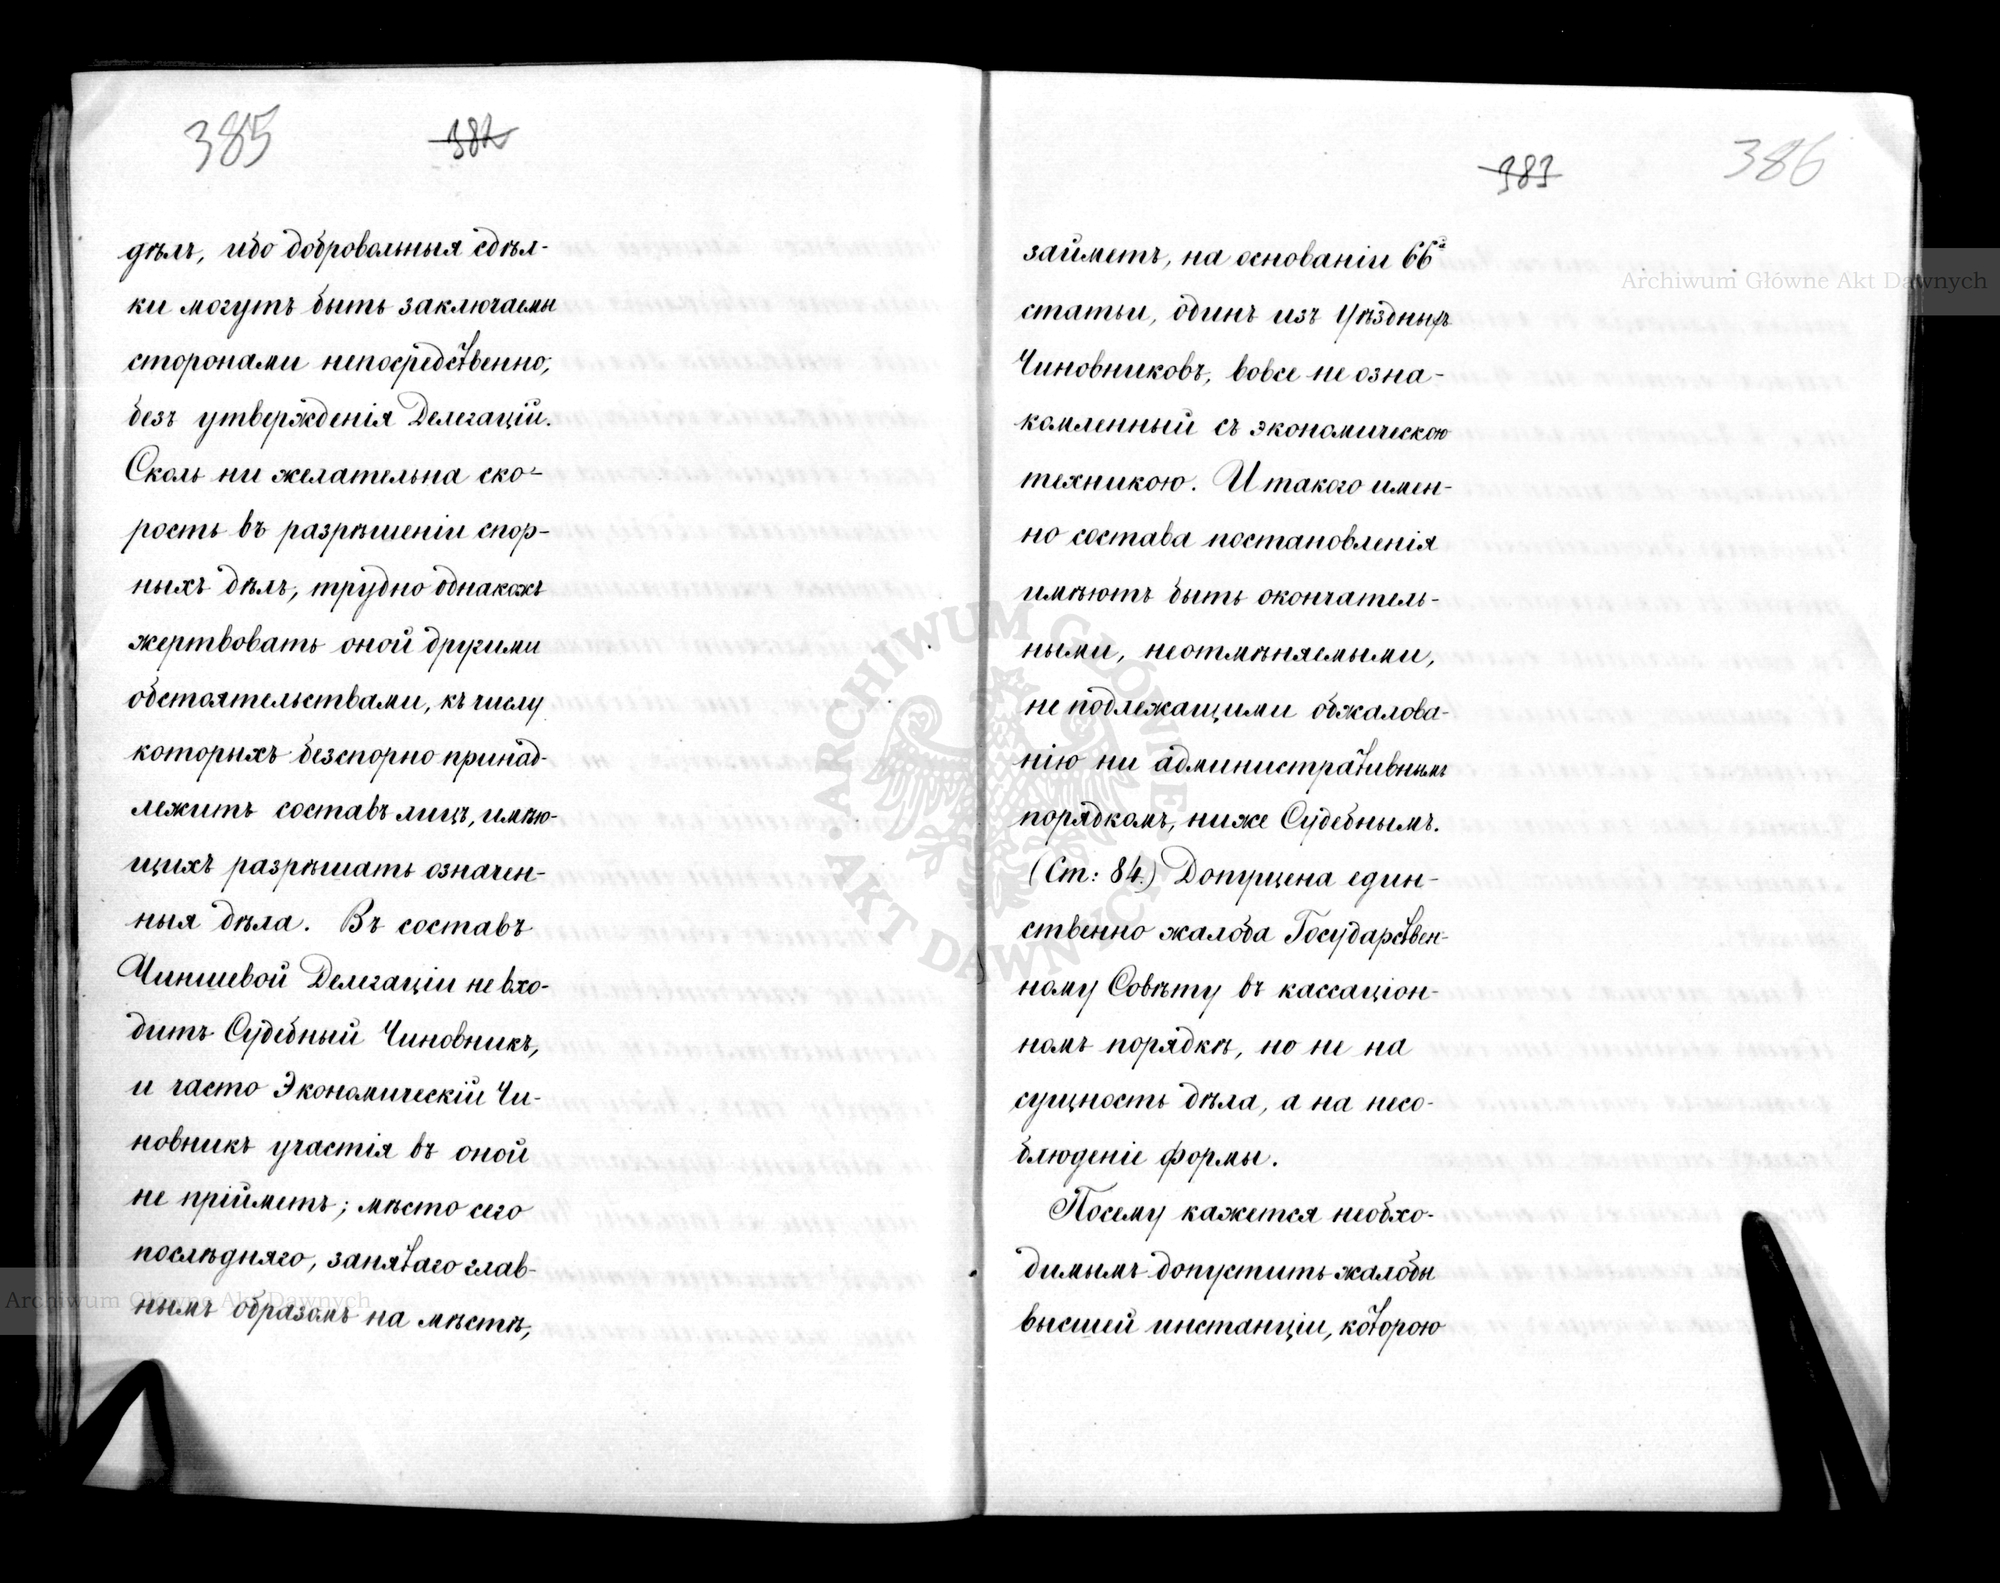 385
382
дѣлъ, ибо добровольныя сдѣл-
ки могутъ быть заключаемы
сторонами непосредственно,
безъ утвержденія Делегаціи.
Сколь ни желательна ско-
рость въ разрѣшеніи спор-
ныхъ дѣлъ, трудно однакожъ
жертвовать оной другими
обстоятельствами, къ числу
которыхъ безспорно принад-
лежитъ составъ лицъ, имѣю-
щихъ разрѣшать означен-
ныя дѣла. Въ составъ
Чиншевой Делегаціи не вхо-
дитъ Судебный Чиновникъ,
и часто Экономическій Чи-
новникъ участія въ оной
не прійметъ; мѣсто сего
послѣдняго, занятаго глав-
нымъ образомъ на мѣстѣ,
383
386
займетъ, на основаніи 66й
статьи, одинъ изъ Уѣздныхъ
Чиновниковъ, вовсе не озна-
комленный съ экономическою
техникою. И такого имен-
но состава постановленія
имѣютъ быть окончатель-
ными, неотмѣняемыми,
не подлежащими обжалова-
нію ни административнымъ
порядкомъ, ниже Судебнымъ.
(Ст: 84.) Допущена един-
ственно жалоба Государствен-
ному Совѣту въ кассаціон-
номъ порядкѣ, но не на
сущность дѣла, а на несо-
блюденіе формы.
Посему кажется необхо-
димымъ допустить жалобы
высшей инстанціи, которою
Archiwum Główne Akt Dawnych
Archiwum Główne Akt Dawnych
ARCHIWUM GŁÓWNE AKT DAWNYCH